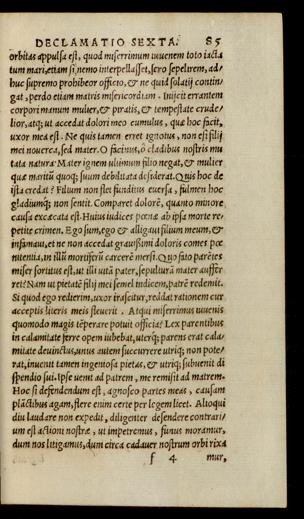 DECLAMATIO SEXTA. 85
orbitas appulsa est, quod miserrimum iuuenem toto iacta
tum mari, etiam si nemo interpellasset, sero sepelirem, ad/
huc supremo prohibeor officio, & ne quid solatij contin/
gat, perdo etiam matris misericordiam. iniicit errantem
corpori manum mulier, & piratis, & tempestate crude/
lior, atq; ut accedat dolori meo cumulus, quæ hoc facit,
uxor mea est. Ne quis tamen erret ignotus, non est filij
mei nouerca, sed mater. O facinus, ô cladibus nostris mu
tata natura: Mater ignem ultimum filio negat, & mulier
quæ maritũ quoq; suum debilitata desiderat. Quis hoc de
ista credat? Filium non flet funditus euersa, fulmen hoc
gladiumq; non sentit. Comparet dolorẽ, quanto minore
causa excæcata est. Huius iudices pœnæ ab ipsa morte re/
petite crimen. Ego sum, ego & alligaui filium meum, &
infamaui, et ne non accedat grauissimi doloris comes pœ
nitentia, in illũ mortiferũ carcerẽ mersi. Quo fato parẽtes
miser sortitus est, ut illi uiuo pater, sepulturã mater auffer
ret? Nam ut pietatẽ filij mei semel indicem, patrẽ redemit.
Si quod ego redierim, uxor irascitur, reddat rationem cur
acceptis literis meis fleuerit. Atqui miserrimus iuuenis
quomodo magis tẽperare potuit officia? Lex parentibus
in calamitate ferre opem iubebat, uterq; parens erat cala/
mitate deuinctus, unus autem succurrere utriq; non pote/
rat, inuenit tamen ingeniosa pietas, & utriq; subuenit di
spendio sui. Ipse uenit ad patrem, me remisit ad matrem.
Hoc si defendendum est, agnosco partes meas, causam
plãctibus agam, flere enim certe per legem licet. Alioqui
diu laudare non expedit, diligenter defendere contrari/
um est actioni nostræ, ut impetremus, funus moramur,
dum nos litigamus, dum circa cadauer nostrum orbi rixa
f 4 mur,